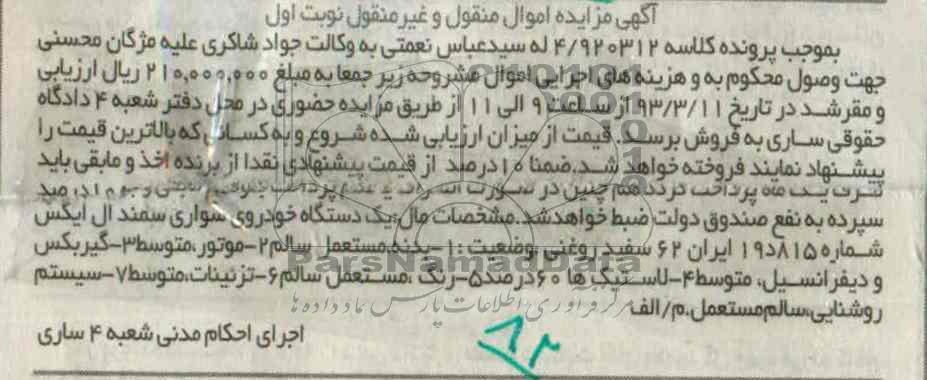 آگهی مزایده اموال منقول و غیرمنقول نوبت اول
بموجب پرونده کلاسه ۴/۹۲۰۳۱۲ له سیدعباس نعمتی به وکالت جواد شاکری علیه مژگان محسنی
جهت وصول محکوم به و هزینه های اجرایی اموال مشروحه زیر جمعا به مبلغ ۲۱۰,۰۰۰,۰۰۰ ریال ارزیابی
و مقرر شد در تاریخ ۹۳/۳/۱۱ از ساعت ۹ الی ۱۱ از طریق مزایده حضوری در محل دفتر شعبه ۴ دادگاه
حقوقی ساری به فروش برسد. قیمت از میزان ارزیابی شده شروع و به کسانی که بالاترین قیمت را
پیشنهاد نمایند فروخته خواهد شد. ضمنا ۱۰درصد از قیمت پیشنهادی نقدا از برنده اخذ و مابقی باید
ظرف یک ماه پرداخت گردد هم چنین در صورت انصراف یا عدم پرداخت ۱۰درصد
سپرده به نفع صندوق دولت ضبط خواهدشد. مشخصات مال: یک دستگاه خودروی سواری سمند ال ایکس
شماره ۸۱۵د۱۹ ایران ۶۲ سفید روغنی وضعیت: ۱-بدنه، مستعمل سالم۲-موتور، متوسط۳-گیربکس
و دیفرانسیل، متوسط۴-لاستیک ها ۶۰درصد۵-رنگ، مستعمل سالم۶-تزئینات، متوسط۷-سیستم
روشنایی، سالم مستعمل. م/الف
اجرای احکام مدنی شعبه ۴ ساری
۸۲
ParsNamadData
مرکز فرآوری اطلاعات پارس نماد داده ها